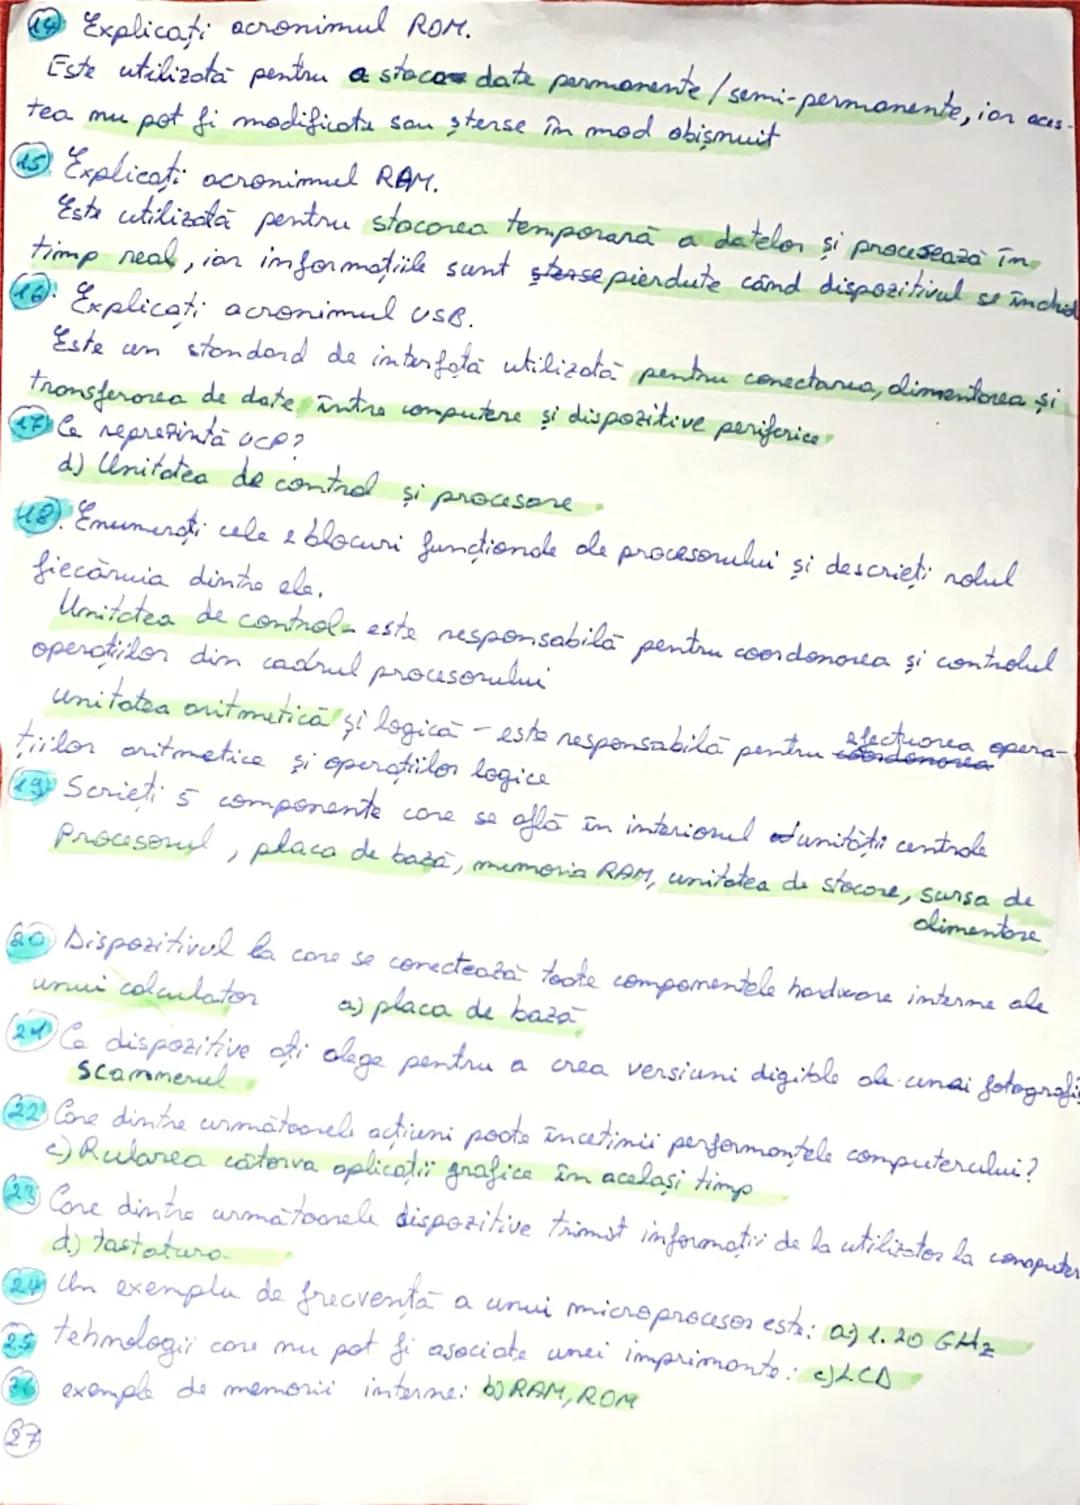 14 Explicați acronimul ROM.
Este utilizată pentru a stoca date permanente/semi-permanente, iar aces-
tea nu pot fi modificate sau șterse în mod obișnuit
15. Explicați acronimul RAM.
Este utilizată pentru stocarea temporară a datelor și procesează în
timp real, iar informațiile sunt șterse pierdute când dispozitivul se închid
16. Explicați acronimul USB.
Este un standard de interfață utilizată pentru conectarea, alimentarea și
transferarea de date între computere și dispozitive periferice
17 Ce reprezintă UCP?
d) Unitatea de control și procesare
18. Enumerați cele 2 blocuri funcționale ale procesorului și descrieți rolul
fiecăruia dintre ele.
Unitatea de control - este responsabilă pentru coordonarea și controlul
operațiilor din cadrul procesorului
unitatea aritmetică și logică - este responsabilă pentru coordonarea efectuarea opera-
țiilor aritmetice și operațiilor logice
19 Scrieți 5 componente care se află în interiorul unității centrale
Procesorul, placa de bază, memoria RAM, unitatea de stocare, sursa de
alimentare
20 Dispozitivul la care se conectează toate componentele hardware interne ale
unui calculator a) placa de bază
21 Ce dispozitive ați alege pentru a crea versiuni digitale ale unei fotografii
scannerul
22 Care dintre următoarele acțiuni poate încetinii performanțele computerului?
c) Rularea câtorva aplicații grafice în același timp
23 Care dintre următoarele dispozitive trimit informații de la utilizator la computer
d) tastatura
24 Un exemplu de frecvență a unui microprocesor este: a) 1.20 GHz
25 tehnologii care nu pot fi asociate unei imprimante: c) LCD
26 exemple de memorii interne: b) RAM, ROM
27